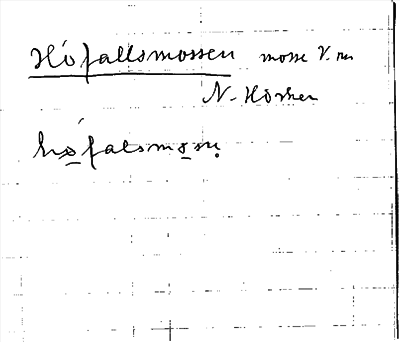 Höfallsmossen mosse V. om
N. Hörken
hǿfalsmo̲sṇ